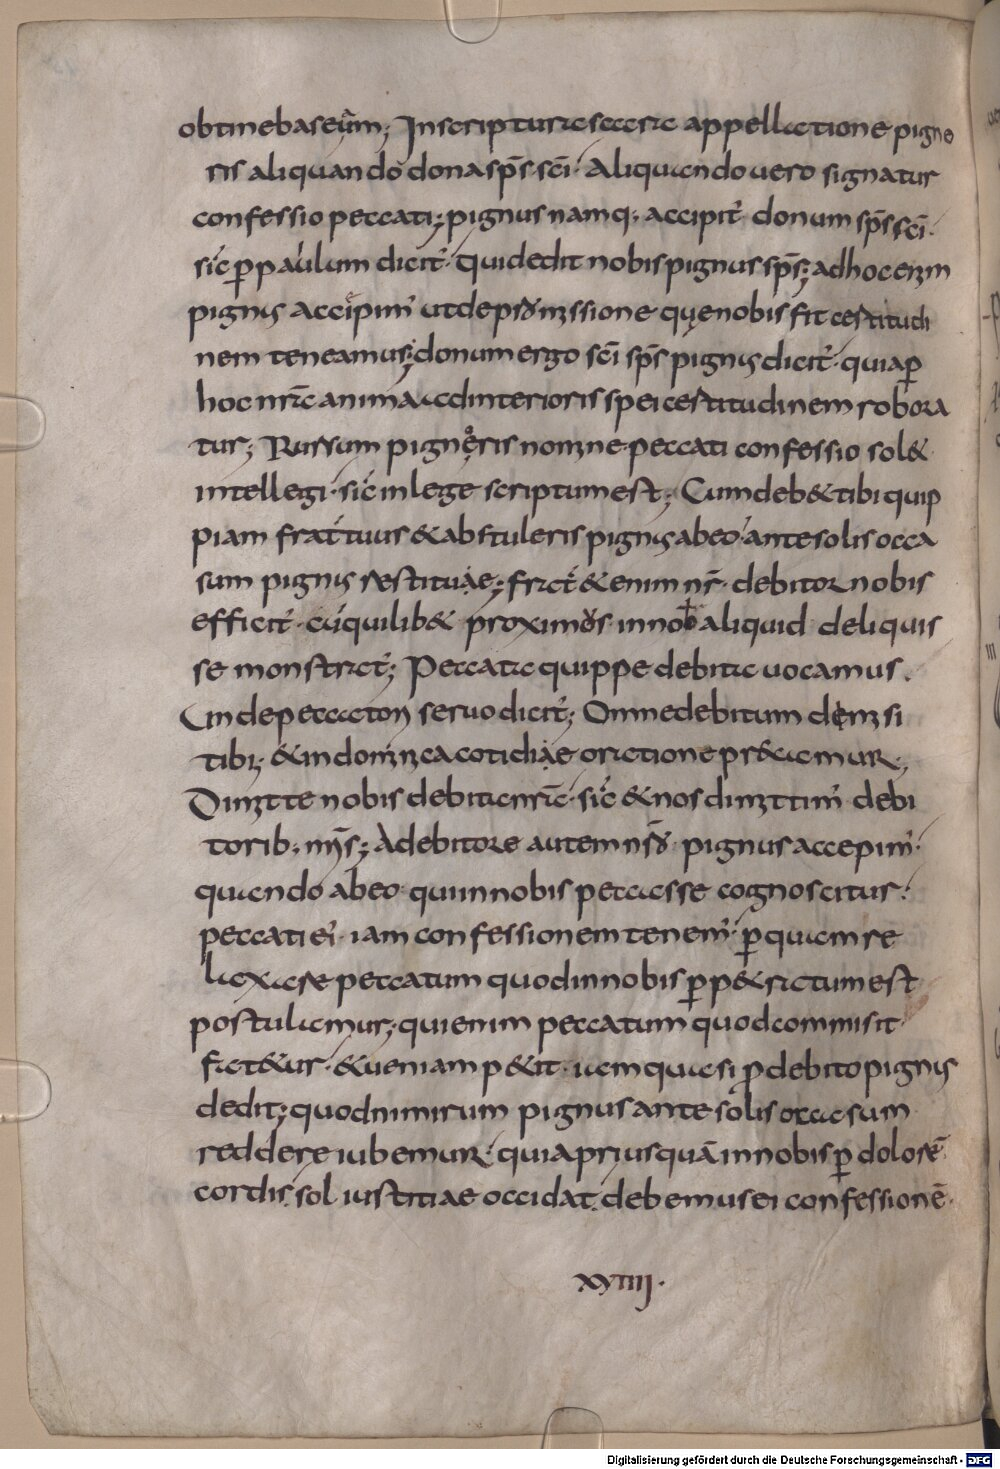 obtinebas eum; In scriptura sacra appellatione pigne
ris aliquando dona sp̄s sc̄i. Aliquando uero signatur
confessio peccati; pignus namq; accipit̄ donum sp̄s sc̄i.
sic̄ p̄ paulum dicit̄. qui dedit nobis pignus sp̄s; ad hoc enim
pignus accipim̄ ut de promissione quę nobis fit certitudi
nem teneamus; donum ergo sc̄i sp̄s pignus dicit̄. quia p̄
hoc nr̄a anima ad interioris spei certitudinem robora
tur; Rursum pigneris nomine peccati confessio sol&
intellegi. sic̄ in lege scriptum est; Cum deb& tibi quip
piam frat̄ tuus & abstuleris pignus ab eo. ante solis occa
sum pignus restituae; frat̄ & enim nr̄. debitor nobis
efficit̄. cū quilib& proximorum in nob aliquid deliquis
se monstrat̄; Peccata quippe debita uocamus.
Unde peccatori seruo dicit̄; Omne debitum demisi
tibi; & in dominica cotidiae oratione pr&camur;
Dimitte nobis debita nr̄a. sic̄ & nos dimittim̄ debi
torib; nr̄is; A debitore autem nr̄o pignus accepim̄.
quando ab eo qui in nobis peccasse cognoscitur.
peccati ei'. iam confessionem tenem̄. p̄ quam re
laxare peccatum quod in nobis p̄p&ratum est
postulamur; qui enim peccatum quod commisit
fat&ur. & ueniam p&it. iam quasi p̄ debito pignus
dedit; quod nimirum pignus ante solis occasum
reddere iubemur. quia priusquā in nobis p̄ dolorē
cordis. sol iustitiae occidat. debemus ei confessionē.
xviiij.
Digitalisierung gefördert durch die Deutsche Forschungsgemeinschaft - DFG